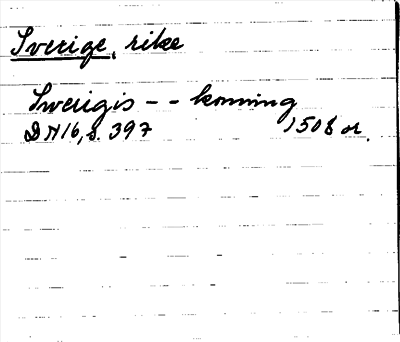 Sverige, rike
Swerigis -- konning
DN16, s. 397 1508 or.